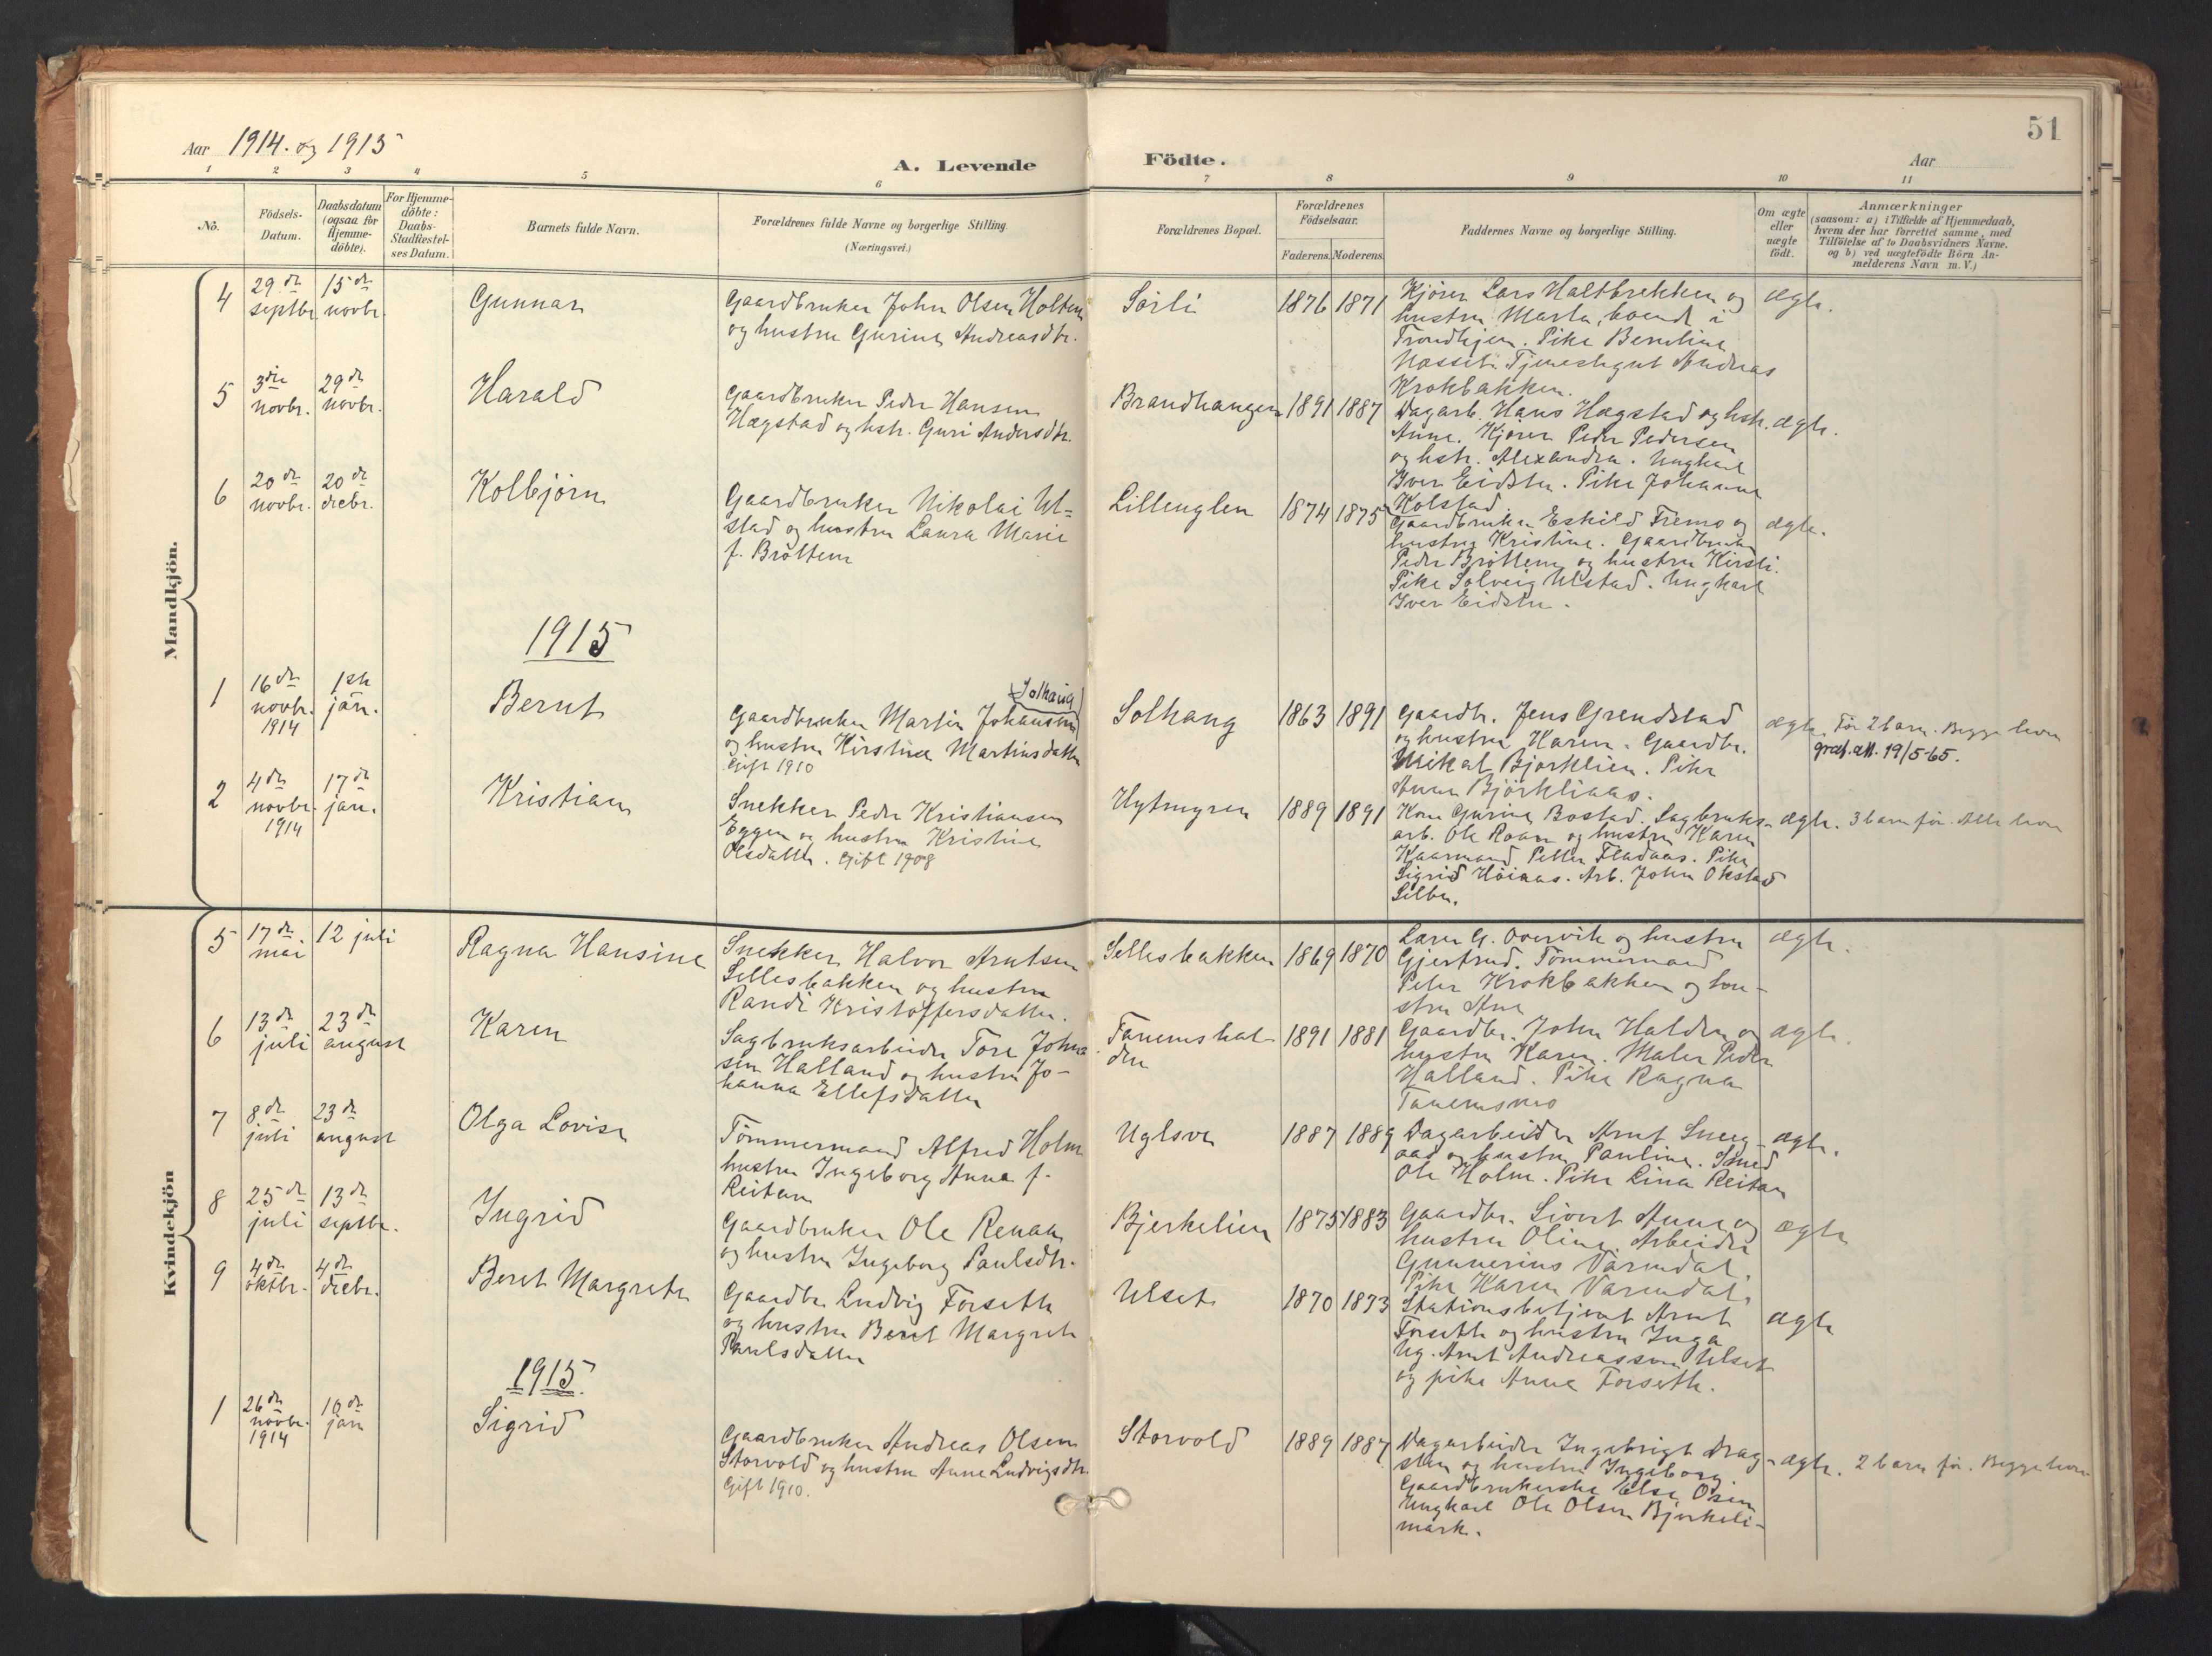 51
Aar 1914. og 1915
A. Levende Födte.
Aar
1 2 3 4 5 6 7 8 9 10 11
No.
Födsels-
Datum.
Daabsdatum
(ogsaa for
Hjemme-
döbte).
For Hjemme-
döbte:
Daabs-
Stadfæstel-
ses Datum.
Barnets fulde Navn.
Forældrenes fulde Navne og borgerlige Stilling
(Næringsvei.)
Forældrenes Bopæl.
Forældrenes
Födselsaar.
Faderens. Moderens.
Faddernes Navne og borgerlige Stilling.
Om ægte
eller
uægte
födt.
Anmærkninger
(saasom: a) i Tilfælde af Hjemmedaab,
hvem der har forrettet samme, med
Tilföielse af to Daabsvidners Navne.
og b) ved uægtefödte Börn An-
melderens Navn m. V.)
Mandkjön.
4
29de
septbr.
15de
novbr.
Gunnar
Gaardbruker John Olsen Holten
og hustru Gurine Andreasdtr.
Sørli
1876 1871
Kjører Lars Haltbrekken og
hustru Marta, boende i
Trondhjem. Pike Berntine
Nosset. Tjenestegut Andreas
Krokbakken.
ægte.
5
3die
novbr.
29de
novbr.
Harald
Gaardbruker Peder Hansen
Hægstad og hstr. Guri Andersdtr.
Brandhaugen
1891 1887
Dagarb. Hans Hægstad og hstr.
Anne. Kjører Peder Pedersen
og hstr. Alexandra. Ungkarl
Iver Eidstu. Pike Johanne
Kolstad
ægte.
6
20de
novbr.
20de
decbr.
Kolbjørn
Gaardbruker Nikolai Ul=
stad og hustru Laura Marie
f. Brøttem
Lilleuglen
1874 1875
Gaardbruker Eskild Fremo og
hustru Kristine. Gaardbruker
Peder Brøttem og hustru Kirsti.
Pike Solveig Ulstad. Ungkarl
Iver Eidstu.
ægte.
1915
1
16de
novbr.
1914
1ste
jan.
Bernt
Solhaug
Gaardbruker Martin Johansen
og hustru Kirstine Martinsdatter
Gift 1910
Solhaug
1863 1891
Gaardbr. Jens Grendstad
og hustru Karen. Gaardbr.
Mikal Bjørklien. Pike
Anna Bjørkliaas.
ægte.
Før 2 barn. Begge lever
grat. att. 19/5-65.
2
4de
novbr.
1914
17de
jan.
Kristian
Snekker Peder Kristiansen
Eggen og hustru Kristine
Olsdatter. Gift 1908
Hytmyren
1889 1891
Kone Gurine Bostad. Sagbruks-
arb. Ole Roan og hustru Karen
Kaarmand Petter Fladaas. Pike
Sigrid Høiaas. Arb. John Okstad
Selbu.
ægte.
3 barn før. Alle lever
Kvindekjön
5
17de
mai
12 juli
Ragna Hansine
Snekker Halvor Arntsen
Sellesbakken og hustru
Randi Kristoffersdatter.
Sellesbakken
1869 1870
Lærer G. Overvik og hustru
Gjertrud. Tømmermand
Peter Krokbakken og hu-
stru Ane
ægte.
6
13de
juli
23de
august
Karen
Sagbruksarbeider Tore Johan
sen Halland og hustru Jo-
hanna Ellefsdatter
Tanemshal-
den
1891 1881
Gaardbr. John Halden og
hustru Karen. Maler Peder
Halland. Pike Ragna
Tanemsmo
ægte.
7
8de
juli
23de
august
Olga Lovise
Tømmermand Alfred Holm
hustru Ingeborg Anna f.
Reitan
Uglsve
1887 1889
Dagarbeider Arnt Sneeg-
aas og hustru Pauline. Smed
Ole Holm. Pike Lina Reitan
ægte.
8
25de
juli
13de
septbr.
Ingrid
Gaardbruker Ole Renaa
og hustru Ingeborg Paulsdtr.
Bjerkelien
1875 1883
Gaardbr. Sivert Aune og
hustru Oline. Arbeider
Gunnerius Varmdal.
Pike Karen Varmdal.
ægte
9
4de
oktbr.
4de
decbr.
Beret Margrete
Gaardbr. Ludvig Forseth
og hustru Beret Margrete
Paulsdatter
Ulset
1870 1873
Stationsbetjent Arnt
Forseth og hustru Inga
Ug. Arnt Andreassen Ulset
og pike Anna Forseth.
ægte
1915
1
26de
novbr.
1914
10de
jan
Sigrid
Gaardbruker Andreas Olsen
Storvold og hustru Anne Ludvigsdtr.
Gift 1910.
Storvold
1889 1887
Dagarbeider Ingebrigt Drag-
sten og hustru Ingeborg.
Gaardbrukerske Else Osen
Ungkarl Ole Olsen Bjerkeli-
mark.
ægte.
2 barn før. Begge lever